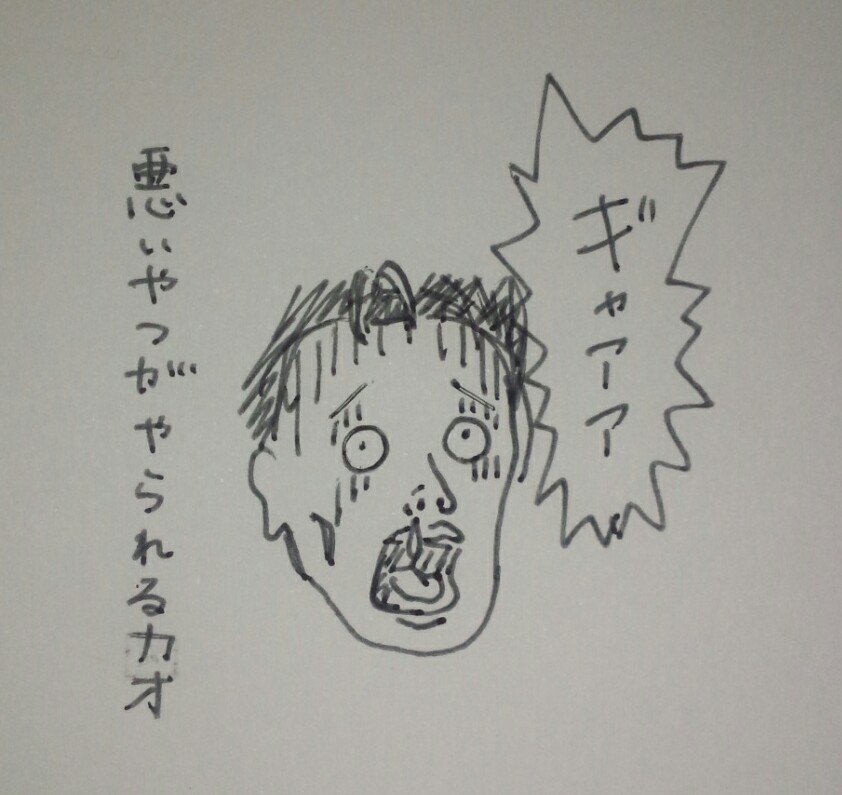 ギャアーアー
悪いやつがやられるカオ